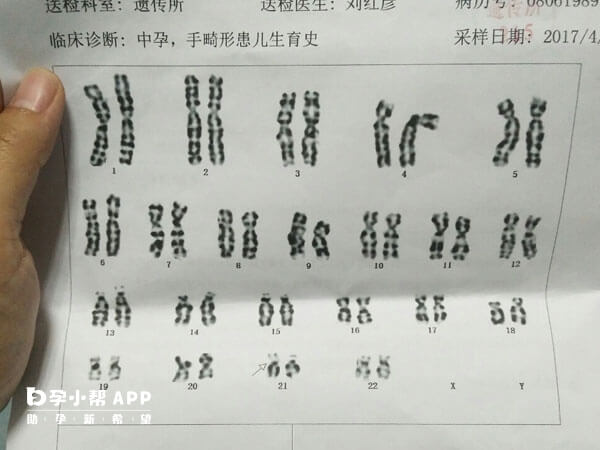 送检科室: 遗传所 送检医生: 刘红彦 病历号: 08061989
遗传所
临床诊断: 中孕, 手畸形患儿生育史 采样日期: 2017/4/
1 2 3 4 5
6 7 8 9 10 11 12
13 14 15 16 17 18
19 20 21 22 X Y
孕小帮APP
助·孕·新·希·望